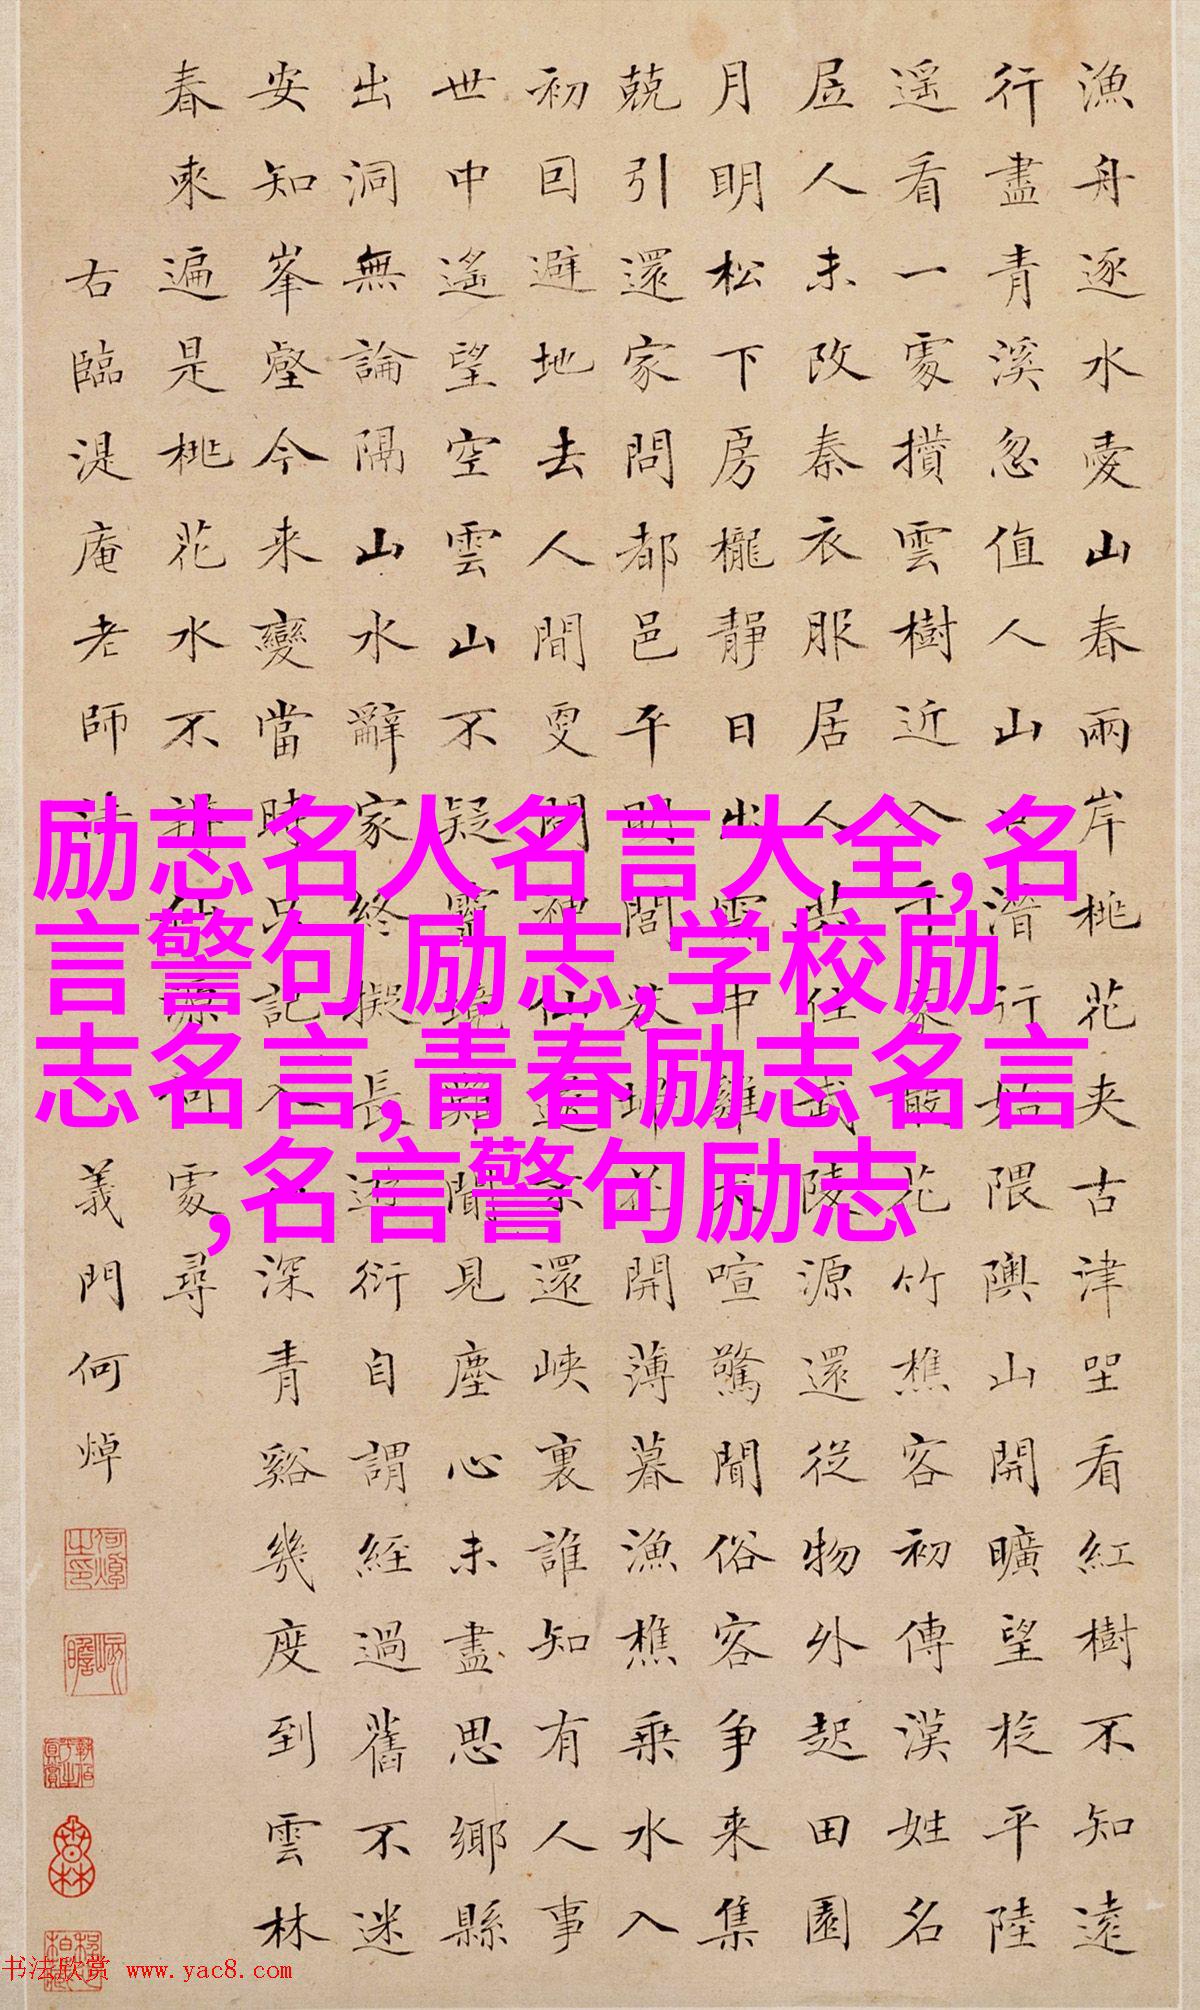 漁舟逐水愛山春兩岸桃花夾古津坐看紅樹不知遠
行盡青溪忽值人山口潛行始隈隩山開曠望旋平陸
遥看一處攢雲樹近入千家散花竹樵客初傳漢姓名
居人未改秦衣服居人共住武陵源還從物外起田園
月明松下房櫳靜日出雲中雞犬喧驚聞俗客争来集
兢引還家問都邑平明閭巷埽花開薄暮漁樵乘水入
初囙避地去人間更問神仙遂不還峽裏誰知有人事
世中遙望空雲山不疑靈境難聞見塵心未盡思鄉縣
出洞無論隔山水辭家終擬長遊衍自謂經過舊不迷
安知峯壑今来變當時只記入山深青谿幾度到雲林
春來遍是桃花水不辨仙源何處尋
右臨湜庵老師
義門何焯
励志名人名言大全,名
言警句 励志,学校励
志名言,青春励志名言
,名言警句励志
书法欣赏 www.yac8.com